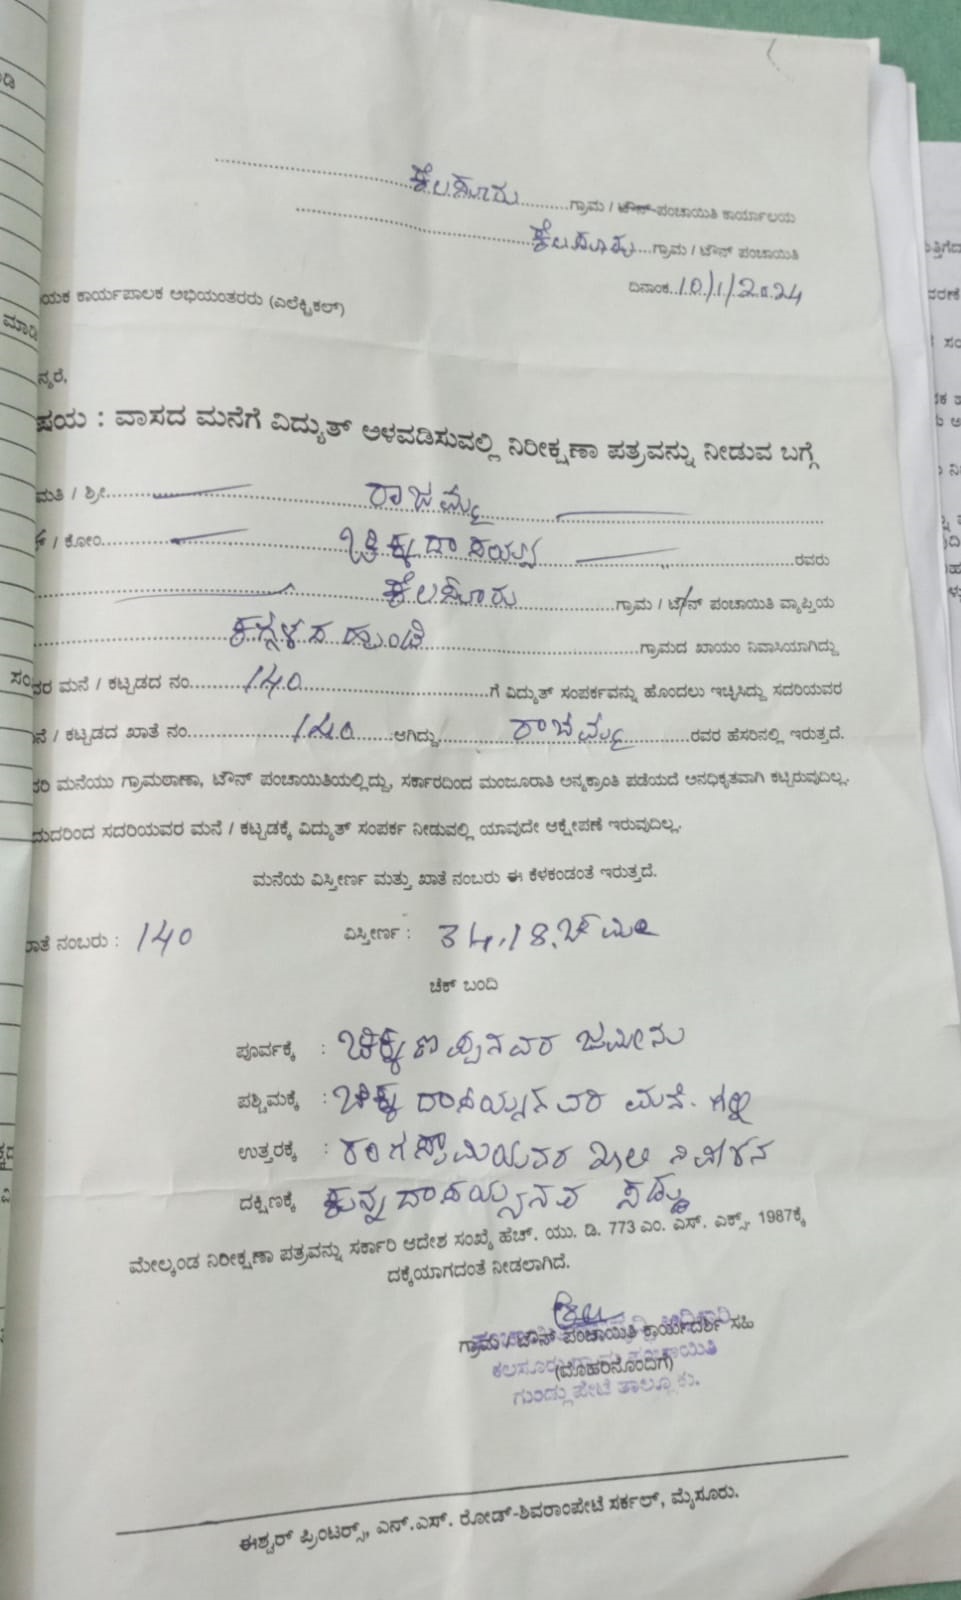 ಕೆಲಸೂರು ಗ್ರಾಮ / ಟೌನ್ ಪಂಚಾಯಿತಿ ಕಾರ್ಯಾಲಯ
ಕೆಲಸೂರು ಗ್ರಾಮ / ಟೌನ್ ಪಂಚಾಯಿತಿ
ದಿನಾಂಕ 10/1/2024
ಯಕ ಕಾರ್ಯಪಾಲಕ ಅಭಿಯಂತರರು (ಎಲೆಕ್ಟ್ರಿಕಲ್)
ನ್ಯರೆ,
ಷಯ : ವಾಸದ ಮನೆಗೆ ವಿದ್ಯುತ್ ಅಳವಡಿಸುವಲ್ಲಿ ನಿರೀಕ್ಷಣಾ ಪತ್ರವನ್ನು ನೀಡುವ ಬಗ್ಗೆ
ಮತಿ / ಶ್ರೀ ರಾಜಮ್ಮ
/ ಕೋಂ ಚಿಕ್ಕದಾಸಯ್ಯ ರವರು
ಕೆಲಸೂರು ಗ್ರಾಮ / ಟೌನ್ ಪಂಚಾಯಿತಿ ವ್ಯಾಪ್ತಿಯ
ಕಗ್ಗಳದ ಹುಂಡಿ ಗ್ರಾಮದ ಖಾಯಂ ನಿವಾಸಿಯಾಗಿದ್ದು
ವರ ಮನೆ / ಕಟ್ಟಡದ ನಂ. 140 ಗೆ ವಿದ್ಯುತ್ ಸಂಪರ್ಕವನ್ನು ಹೊಂದಲು ಇಚ್ಛಿಸಿದ್ದು ಸದರಿಯವರ
ನೆ / ಕಟ್ಟಡದ ಖಾತೆ ನಂ. 140 ಆಗಿದ್ದು ರಾಜಮ್ಮ ರವರ ಹೆಸರಿನಲ್ಲಿ ಇರುತ್ತದೆ.
ರಿ ಮನೆಯು ಗ್ರಾಮಠಾಣಾ, ಟೌನ್ ಪಂಚಾಯಿತಿಯಲ್ಲಿದ್ದು, ಸರ್ಕಾರದಿಂದ ಮಂಜೂರಾತಿ ಅನ್ಯಕ್ರಾಂತಿ ಪಡೆಯದೆ ಅನಧಿಕೃತವಾಗಿ ಕಟ್ಟಿರುವುದಿಲ್ಲ.
ದುದರಿಂದ ಸದರಿಯವರ ಮನೆ / ಕಟ್ಟಡಕ್ಕೆ ವಿದ್ಯುತ್ ಸಂಪರ್ಕ ನೀಡುವಲ್ಲಿ ಯಾವುದೇ ಆಕ್ಷೇಪಣೆ ಇರುವುದಿಲ್ಲ.
ಮನೆಯ ವಿಸ್ತೀರ್ಣ ಮತ್ತು ಖಾತೆ ನಂಬರು ಈ ಕೆಳಕಂಡಂತೆ ಇರುತ್ತದೆ.
ಾತೆ ನಂಬರು : 140 ವಿಸ್ತೀರ್ಣ : 34.18 ಚ ಮೀ
ಚೆಕ್ ಬಂದಿ
ಪೂರ್ವಕ್ಕೆ : ಚಿಕ್ಕಣ್ಣಪ್ಪನವರ ಜಮೀನು
ಪಶ್ಚಿಮಕ್ಕೆ : ಚಿಕ್ಕದಾಸಯ್ಯನವರ ಮನೆ. ಗಲ್ಲಿ
ಉತ್ತರಕ್ಕೆ : ರಂಗಸ್ವಾಮಿಯವರ ಖಾಲಿ ನಿವೇಶನ
ದಕ್ಷಿಣಕ್ಕೆ ಕುನ್ನದಾಸಯ್ಯನವರ
ಮೇಲ್ಕಂಡ ನಿರೀಕ್ಷಣಾ ಪತ್ರವನ್ನು ಸರ್ಕಾರಿ ಆದೇಶ ಸಂಖ್ಯೆ ಹೆಚ್. ಯು. ಡಿ. 773 ಎಂ. ಎಸ್. ಎಕ್ಸ್. 1987ಕ್ಕೆ
ದಕ್ಕೆಯಾಗದಂತೆ ನೀಡಲಾಗಿದೆ.
ಗ್ರಾಮ / ಟೌನ್ ಪಂಚಾಯಿತಿ ಕಾರ್ಯದರ್ಶಿ ಸಹಿ
(ಮೊಹರಿನೊಂದಿಗೆ)
ಕಲಸೂರು ಗ್ರಾಮ ಪಂಚಾಯಿತಿ
ಗುಂಡ್ಲುಪೇಟೆ ತಾಲ್ಲೂಕು.
ಈಶ್ವರ್ ಪ್ರಿಂಟರ್ಸ್, ಎನ್.ಎಸ್. ರೋಡ್-ಶಿವರಾಂಪೇಟೆ ಸರ್ಕಲ್, ಮೈಸೂರು.